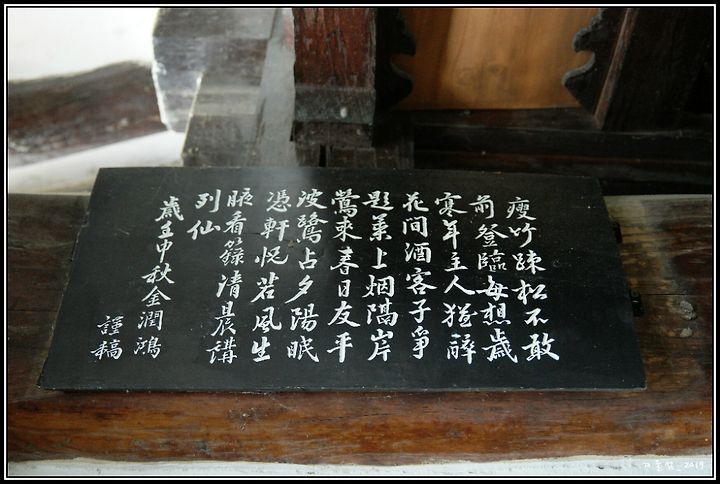 瘦竹疎松不敢
前登臨每想歲
寒年主人猶醉
花間酒客子爭
題葉上烟隔岸
鶯求春日友平
波鷺占夕陽眠
憑軒怳若風生
腋看籙清晨講
列仙
歲壬申秋金潤鴻
謹稿